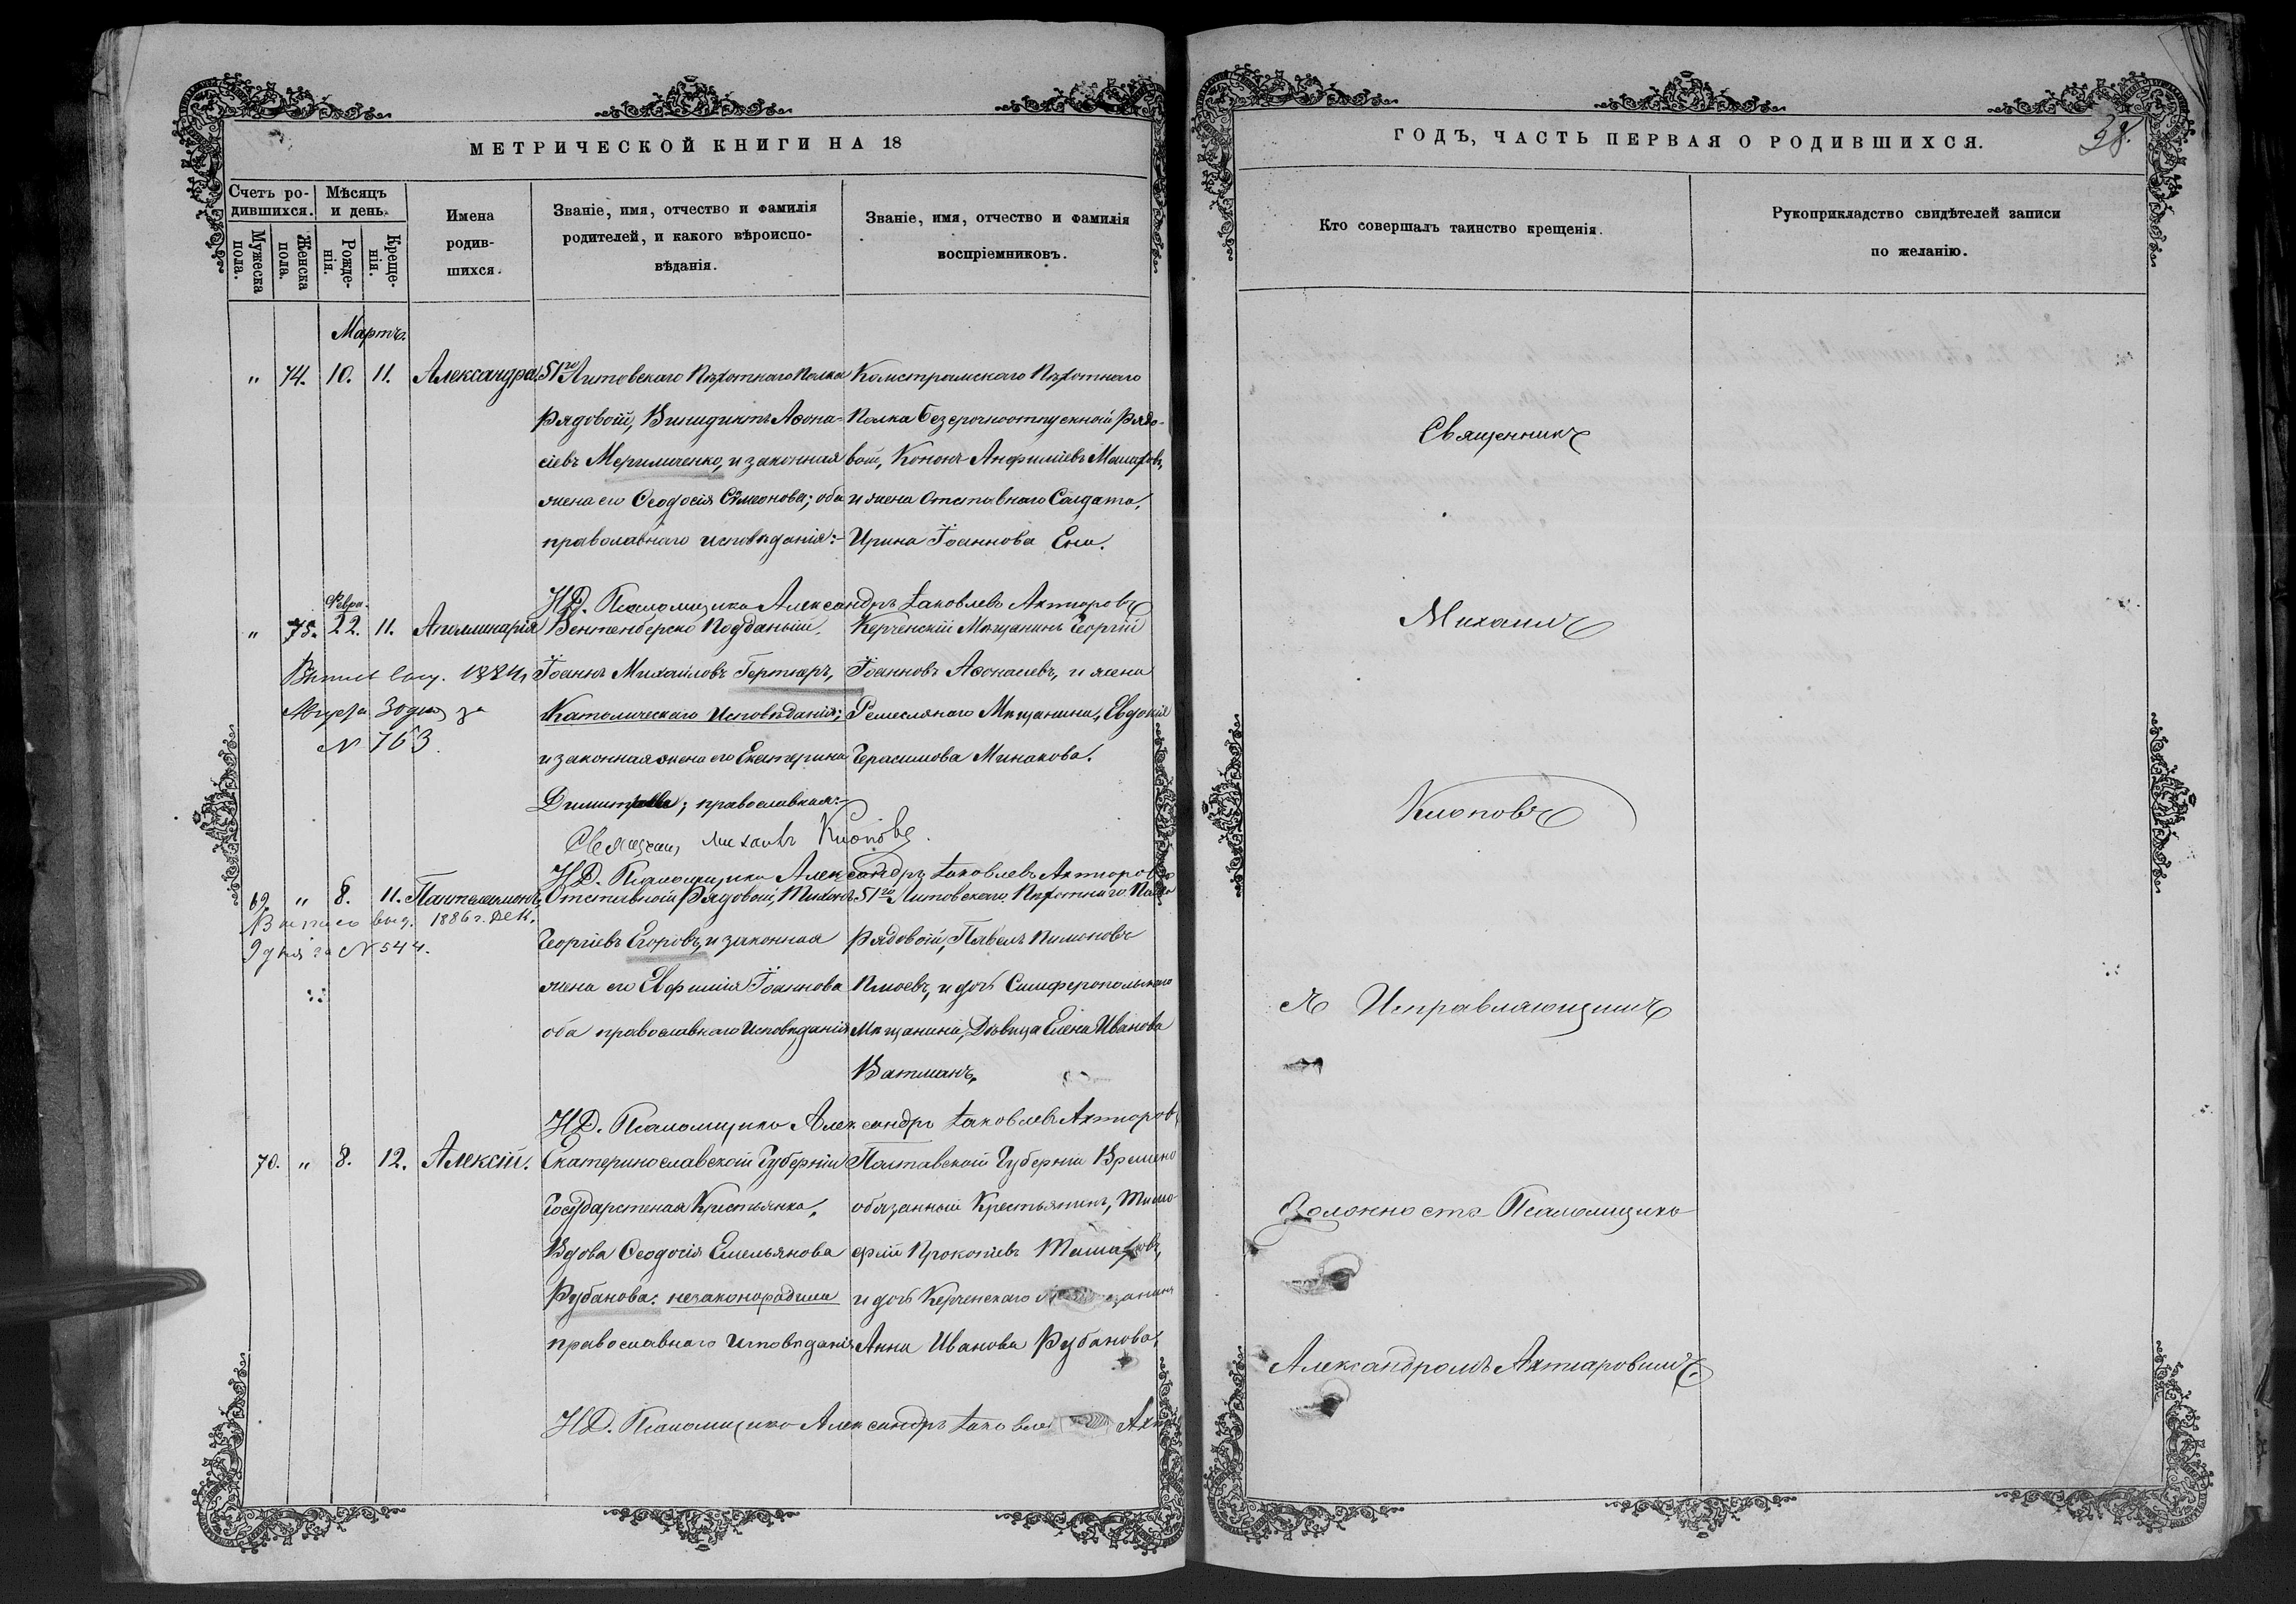 МЕТРИЧЕСКОЙ КНИГИ НА 18
Счетъ ро-
дившихся.
Мѣсяцъ
и день.
Мужеска
пола.
Женска
пола.
Рожде-
нія.
Креще-
нія.
Имена
родив-
шихся.
Званіе, имя, отчество и фамилія
родителей, и какого вѣроиспо-
вѣданія.
Званіе, имя, отчество и фамилія
воспріемниковъ.
Мартъ
" 74. 10. 11. Александра
51го Литовскаго Пѣхотнаго Полка
Рядовой, Винидиктъ Аѳона-
сіевъ Меримченко, и законная
жена его Ѳеодосія Симеонова; оба
православнаго исповѣданія:-
Костромскаго Пѣхотнаго
Полка безсрочноотпускной Рядо-
вой, Кононъ Анфиміевъ
и жена Отставнаго Солдата,
Ирина Іоаннова
И.Д. Псаломщика Александръ Іаковлевъ Ахтіаровъ
Февра.
" 75. 22. 11. Аполинарія
Выпись выд. 1884 г.
Августа 30 дня за
№ 763.
Вентенберско Подданный,
Іоаннъ Михайловъ Гертнеръ,
Католическаго Исповѣданія;
и законная жена его Екатерина
Димитрова; православная:-
Керченскій Мѣщанинъ Георгій
Іоанновъ Аѳонасіевъ, и жена
Ремесленаго Мѣщанина, Евдокія
Герасимова Минакова.
Священникъ Михаилъ Клоповъ.
И.Д. Псаломщика Александръ Іаковлевъ Ахтіаровъ
69. " 8. 11. Пантелеимонъ,
Выпись выд. 1886 г. Дек.
9 дня за № 544.
Отставной Рядовой, Тихонъ
Георгіевъ Егоровъ, и законная
жена его Евфимія Іоаннова
оба православнаго Исповѣданія
51го Литовскаго Пѣхотнаго Полка
Рядовой, Павелъ Пимоновъ
и дочь Симферопольскаго
Мѣщанина, Дѣвица Елена Иванова
Ватманъ.
И.Д. Псаломщика Александръ Іаковлевъ Ахтіаровъ
70. " 8. 12. Алексій.
Екатеринославской Губерніи
Государственая Крестьянка,
Вдова Ѳеодосія Емельянова
Рубанова. незаконорадила
православнаго Исповѣданія
Полтавской Губерніи Времено
обязанный Крестьянинъ, Тимо-
фей Прокопіевъ
и дочь Керченскаго
Анна Иванова Рубанова,
И.Д. Псаломщика Александръ Іаковле
ГОДЪ, ЧАСТЬ ПЕРВАЯ О РОДИВШИХСЯ.
38.
Кто совершалъ таинство крещенія.
Рукоприкладство свидѣтелей записи
по желанію.
Священникъ
Михаилъ
Клоповъ
Съ Исправляющимъ
Должность Псаломщика
Александромъ Ахтіаровымъ.